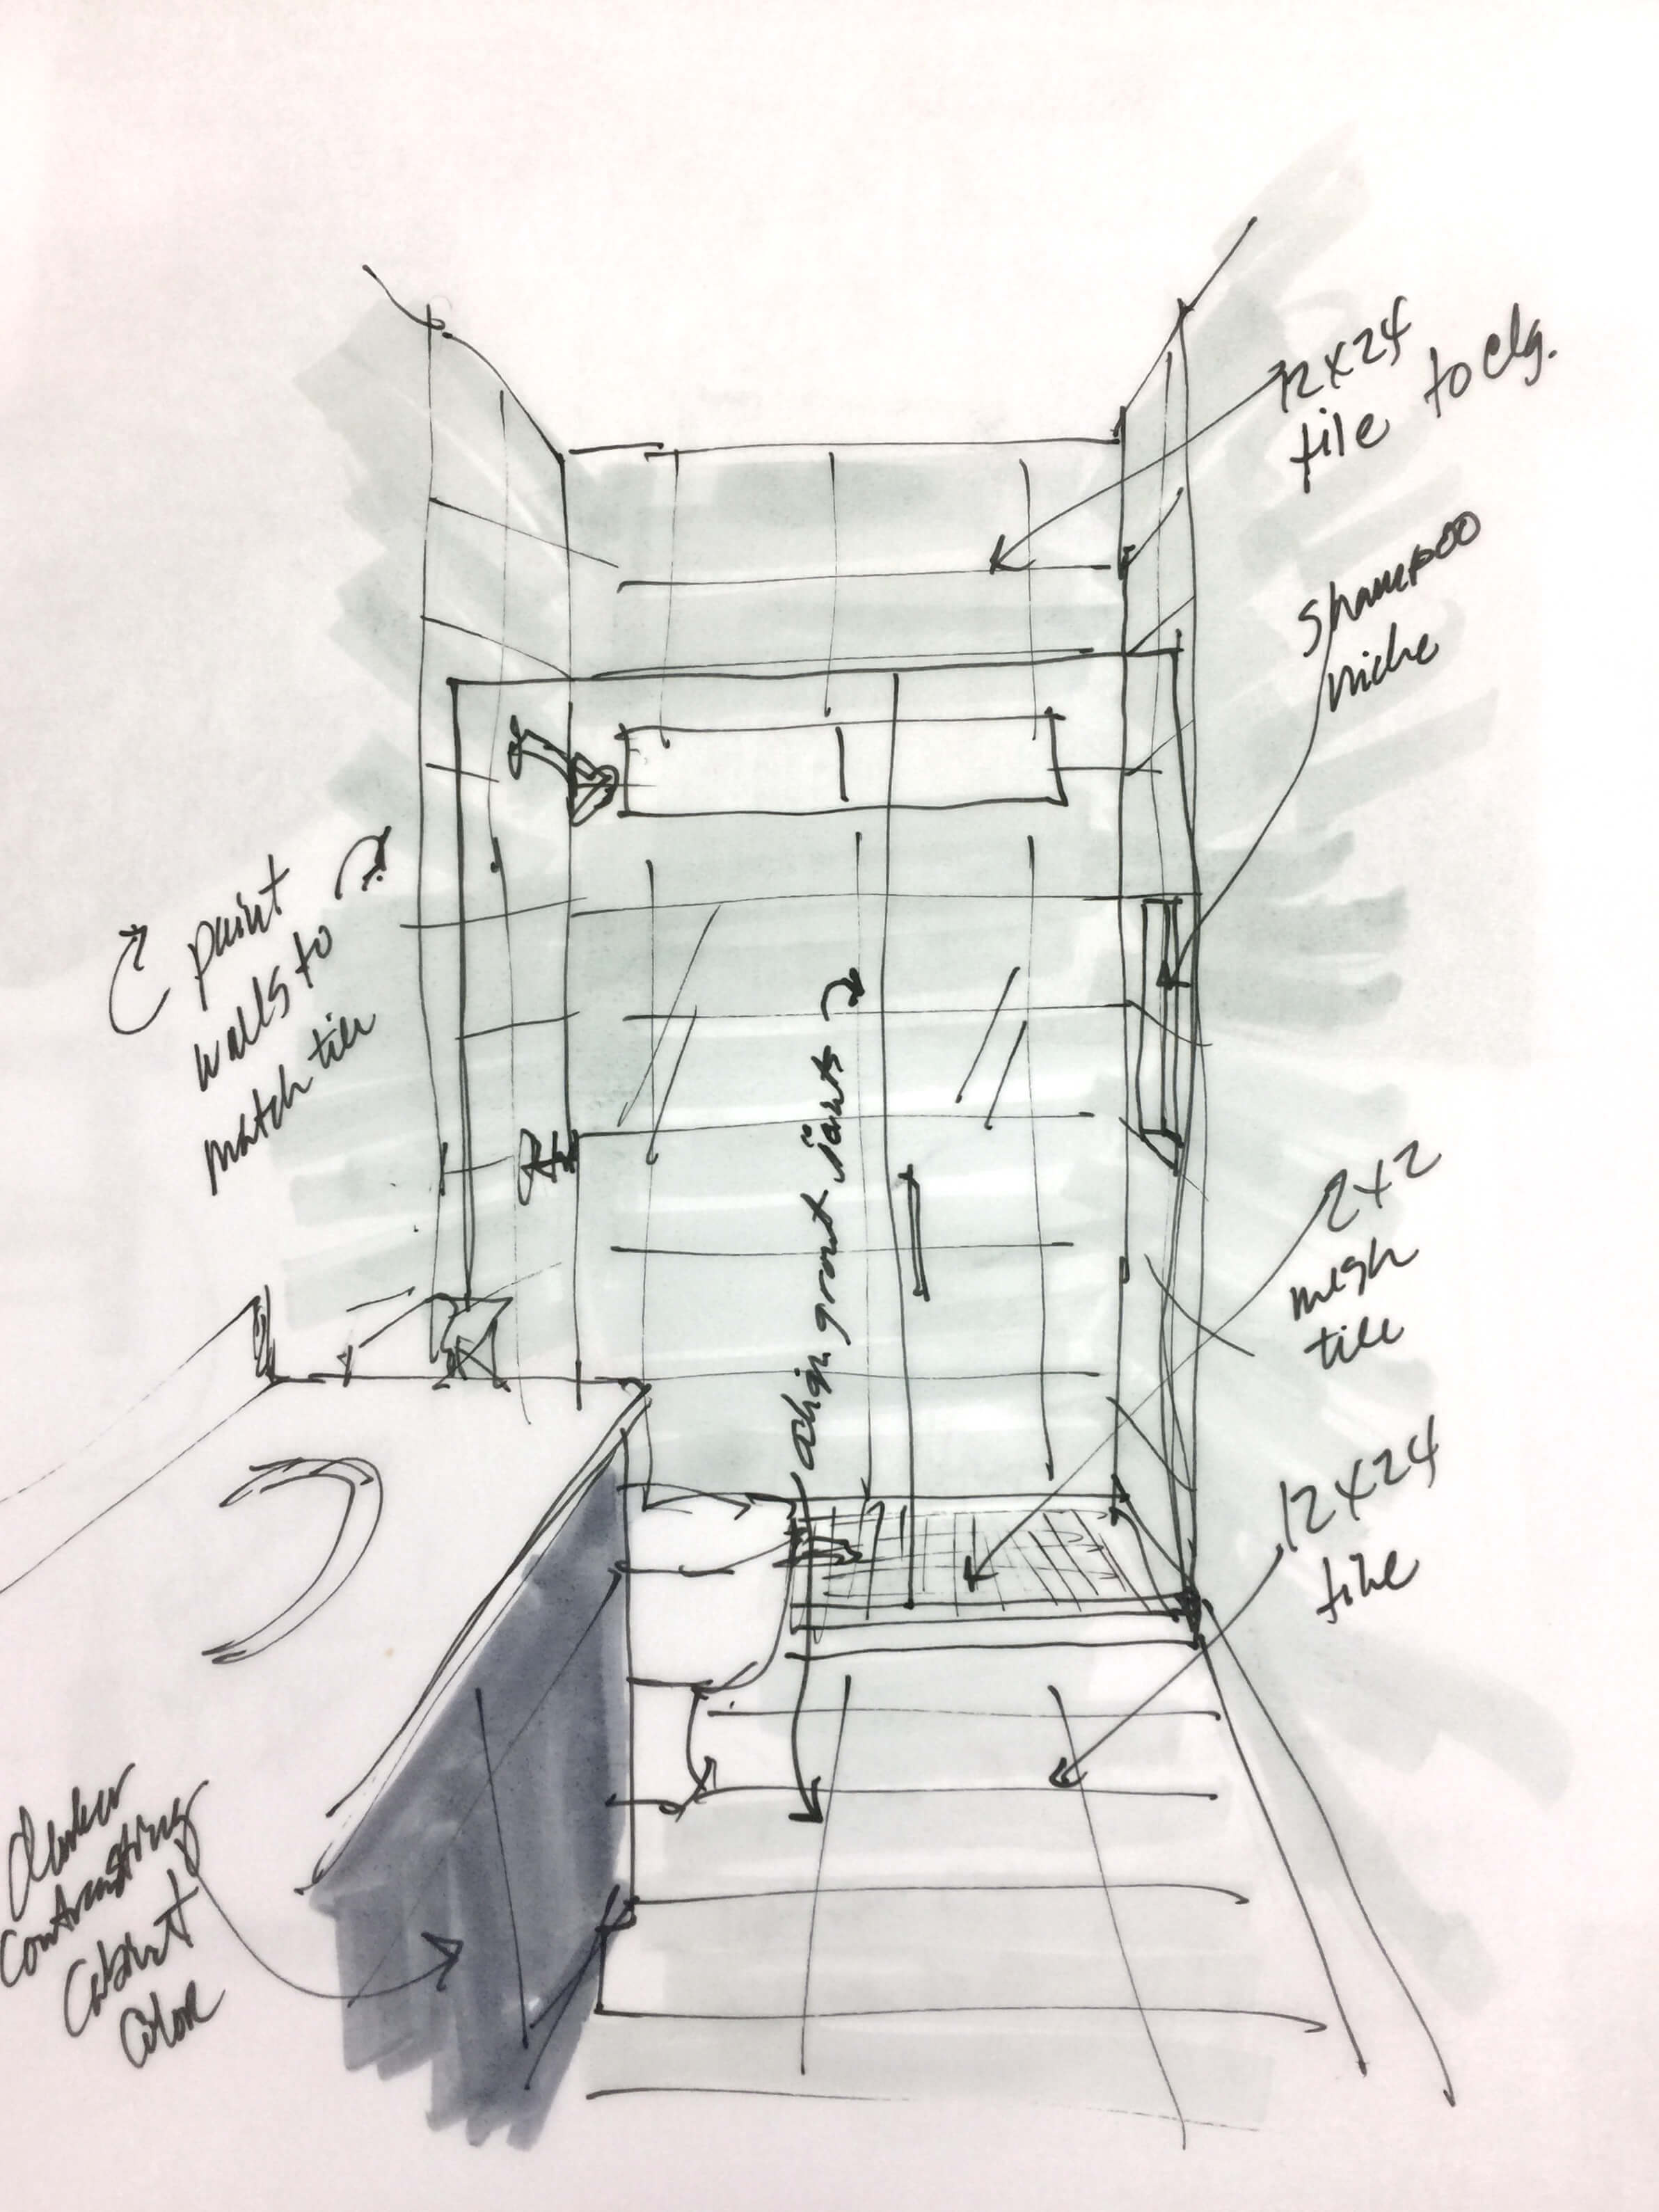 12x24
tile to clg.
shampoo
niche
paint
walls to
match tile
align grout joints
2x2
mesh
tile
12x24
tile
darker
contrasting
cabinet
color